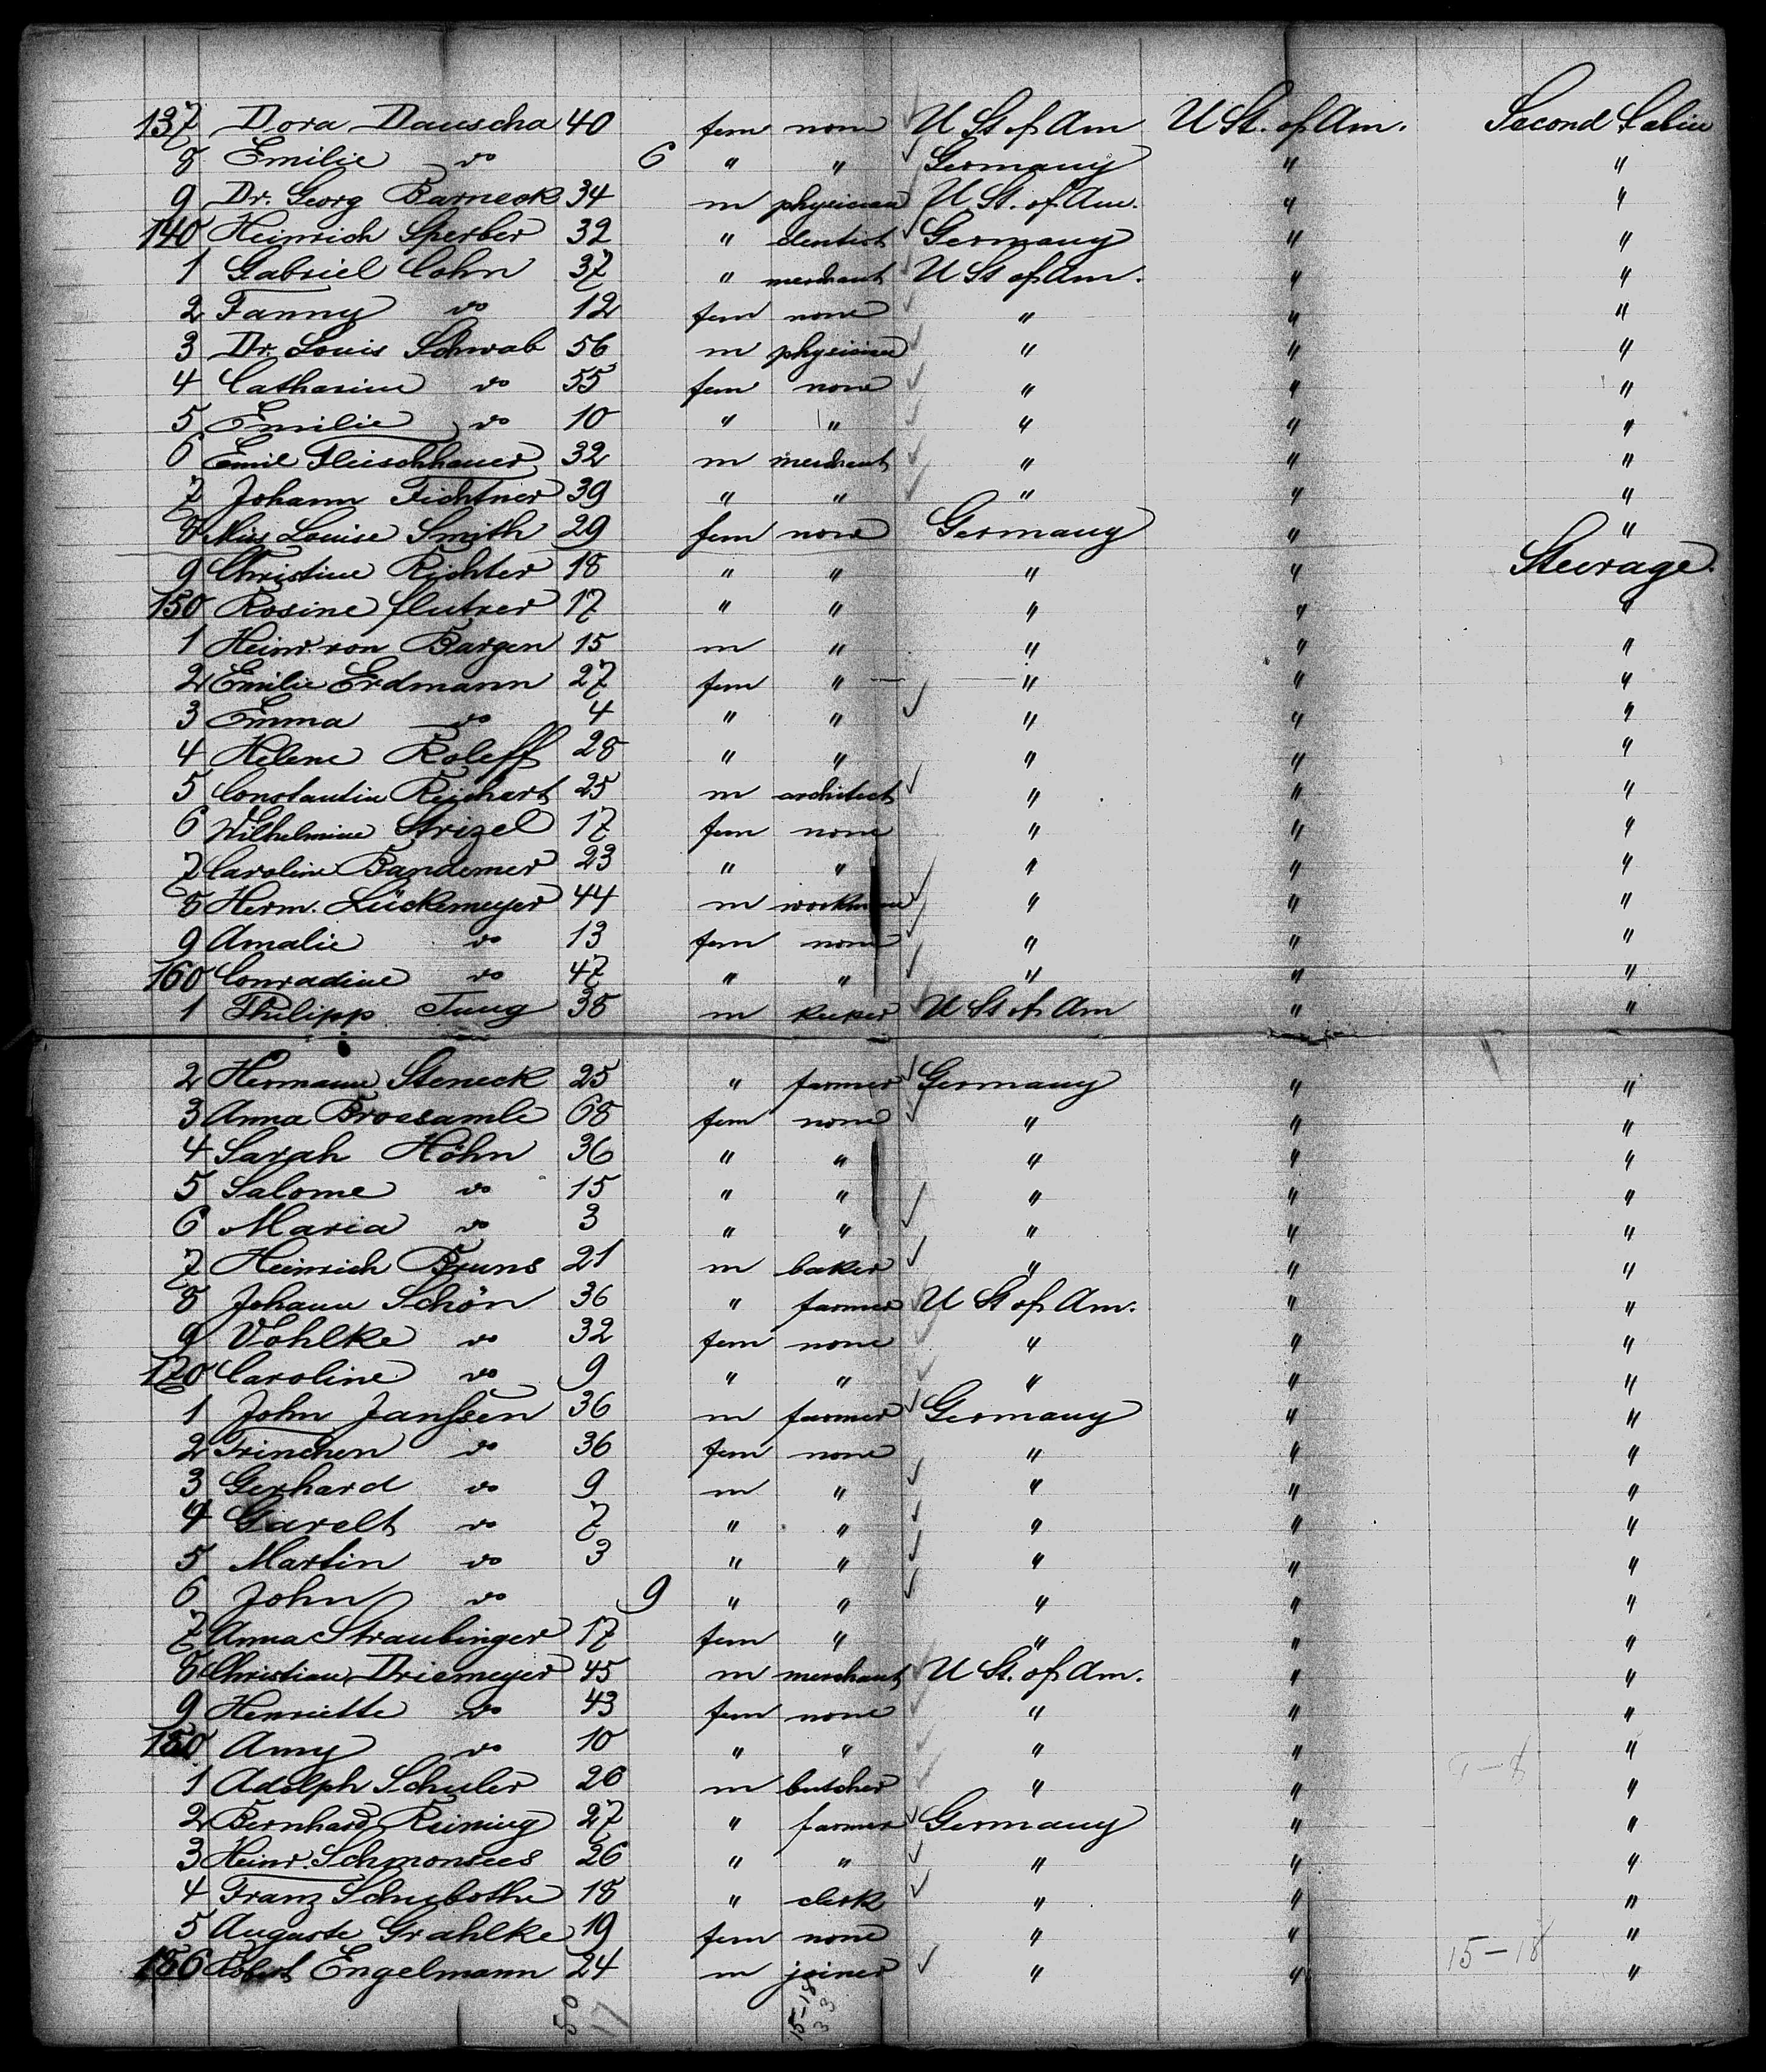 137 Dora Dauscha 40 fem none U St of Am U St. of Am. Second Cabin
8 Emilie do 6 " " Germany " "
9 Dr. Georg Barneck 34 m physician U St. of Am. " "
140 Heinrich Sperber 32 " dentist Germany " "
1 Gabriel Cohn 37 " merchant U St of Am. " "
2 Fanny do 12 fem none " " "
3 Dr. Louis Schwab 56 m physician " " "
4 Catharine do 55 fem none " " "
5 Emilie do 10 " " " " "
6 Emil Fleischhauer 32 m merchant " " "
7 Johann Fichtner 39 " " " " "
8 Miss Louise Smith 29 fem none Germany " "
9 Christine Richter 18 " " " " Steerage.
150 Rosine 17 " " " " "
1 Heinr. von Bargen 15 m " " " "
2 Emilie Erdmann 27 fem " " " "
3 Emma do 4 " " " " "
4 Helene Roleff 28 " " " " "
5 Constantin Reichert 25 m architect " " "
6 Wilhelmine Strizel 17 fem none " " "
7 Caroline Bandemer 23 " " " " "
8 Herm. Lückemeyer 44 m workman " " "
9 Amalie do 13 fem none " " "
160 Conradine do 47 " " " " "
1 Philipp Jung 38 m keeper U St of Am " "
2 Hermann Steneck 25 " farmer Germany " "
3 Anna Brossamle 68 fem none " " "
4 Sarah Höhn 36 " " " " "
5 Salome do 15 " " " " "
6 Maria do 3 " " " " "
7 Heinrich Bruns 21 m baker " " "
8 Johann Schön 36 " farmer U St of Am. " "
9 Vohlke do 32 fem none " " "
170 Caroline do 9 " " " " "
1 John Janssen 36 m farmer Germany " "
2 Trinchen do 36 fem none " " "
3 Gerhard do 9 m " " " "
4 Garelt do 7 " " " " "
5 Martin do 3 " " " " "
6 John do 9 " " " " "
7 Anna Straubinger 17 fem " " " "
8 Christian Driemeyer 45 m merchant U St. of Am. " "
9 Henriette do 43 fem none " " "
180 Amy do 10 " " " " "
1 Adolph Schuler 26 m butcher " " "
2 Bernhard Reining 27 " farmer Germany " "
3 Heinr. Schmonsees 26 " " " " "
4 Franz Schybothe 18 " clerk " " "
5 Auguste Grahlke 19 fem none " " "
186 Robert Engelmann 24 m joiner " 15-18 " "
50 17 15-18 33